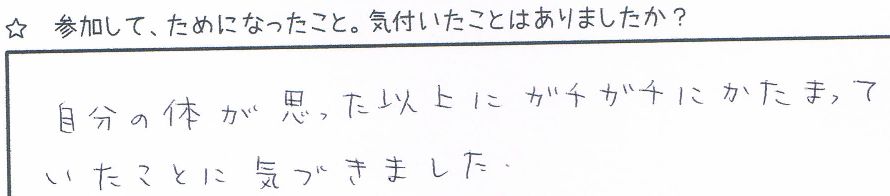 ☆ 参加して、ためになったこと。気付いたことはありましたか?
自分の体が思った以上にガチガチにかたまって
いたことに気づきました.